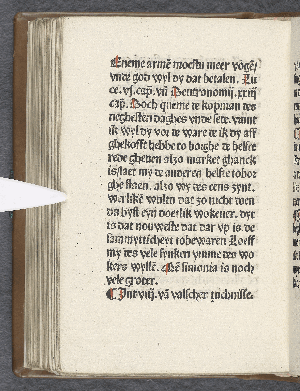 Eneme armē moestu meer vōgē
vnde god wyl dy dat betalen. Lu
ce. vj. cap. vñ Deutronomij. xxiij
cap. Doch queme te kopman tes
neghesten daghes vnde sede. wente
ik wyl dy vor te ware te ik dy aff
ghekofft hebbe to borghe te helfte
rede gheuen also market ghanck
is laet my te anderen helfte to bor
ghe staen. also wy tes eens synt.
Warlikē wultu dat so nicht doen
du byst eyn doetlik wokener. dyt
is dat nouweste dat dar vp is de
sammytticheyt to bewaren Loeff
my tes vele synken vmme tes wo
kers wyllē. Dē simonia is noch
vele groter.
¶ Int viij. vā valscher tuchnisse.